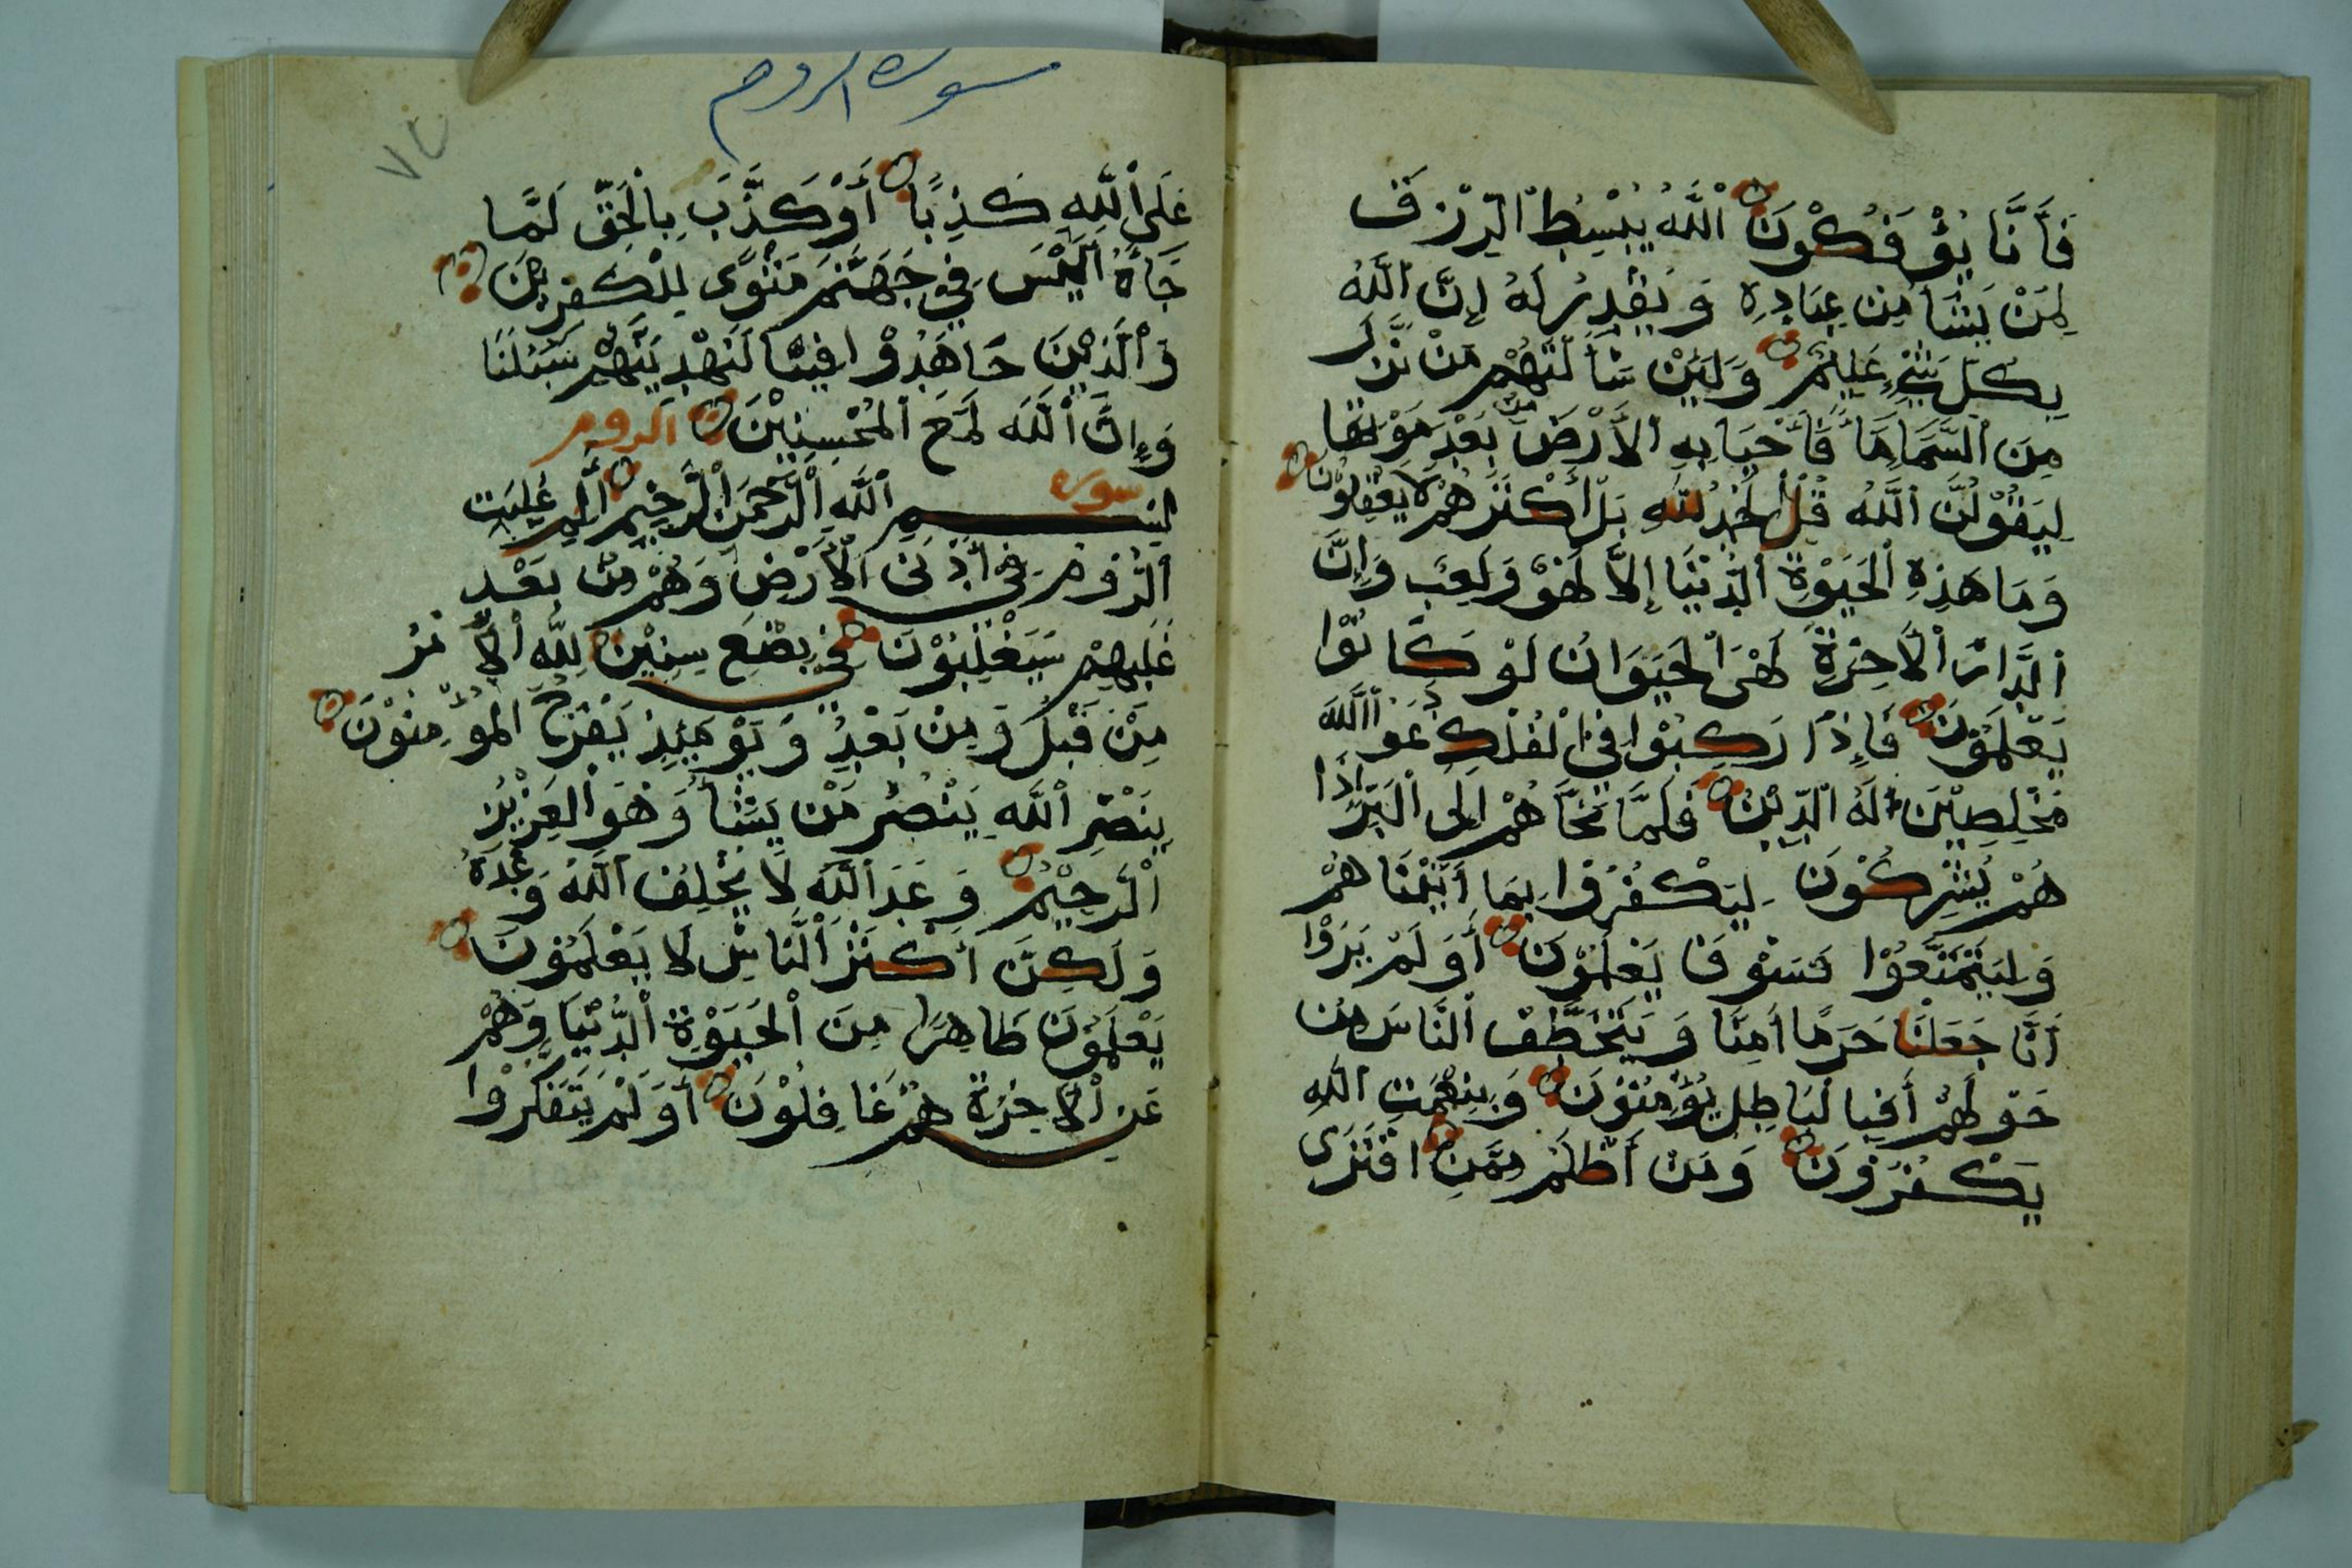 فَأَنَّا يُؤْفَكُونَ اللَّهُ يَبْسِطُ الرِّزْقَ
لِمَنْ يَشَأ مِن عِبَادِهِ وَيَقْدِرُ لَهُ إِنَّ اللَّهُ
بِكُلِّ شَيْءٍ عَلِيمٌ وَلَئِنْ سَأَلْتَهُمْ مَنْ نَّزَّلَ
مِنَ السَّمَاءِ مَا فَأَحْيَا بِهِ الأَرْضَ مِن بَعْدِ مَوْتِهَا
لِيَقُوْلُنَّ اللَّهُ قُلِ الْحَمْدُ لِلَّهِ بَلْ أَكْثَرُ هُمْ لَا يَعْقِلُوْنَ
وَمَا هَذِهِ الْحَيَوٰةِ الدُّنْيَا إِلَّا لَهْوٌ وَلَعِبٌ وَإِنَّ
الدَّارَ الْأَخِرَةِ لَهْىَ الْحَيَوَانُ لَوْ كَانُوْا
يَعْلَمُوْنَ فَإِذَا رَكِبُوْا فِي الْفُلْكِ دَعَوُا اللَّهَ
مُخْلِصِيْنَ لَهُ الدِّيْنَ فَلَمَّا نَجَّا هُمْ إِلَى الْبَرِّ إِذَا
هُمْ يُشْرِكُوْنَ لِيَكْفُرُوْا بِمَا أَتَيْنَا هُمْ
وَلِيَتَمَتَّعُوْا فَسَوْفَ يَعْلَمُوْنَ أَوَ لَمْ يَرَوْا
أَنَّا جَعَلْنَا حَرَمًا أَمِنًا وَيَتَخَطَّفُ النَّاسَ مِن
حَوْلِهُمْ أَفَبِا لْبَاطِلِ يُؤْمِنُوْنَ وَبِنِعْمَتِ اللَّهِ
يَكْفُرُوْنَ وَمَنْ أَظْلَمُ مِمَّنِ افْتَرَى
سورة الروم
٧٤
عَلَى اللَّهِ كَذِبًا أَوْ كَذَّبَ بِالْحَقِّ لَمَّا
جَاءَهُ أَلَيْسَ فِي جَهَنَّمَ مَثْوًى لِلْكٰفِرِيْنَ
وَالَّذِيْنَ جَاهَدُوْا فِيْنَا لَنَهْدِيَنَّهُمْ سُبُلَنَا
وَإِنَّ اللَّهَ لَمَعَ الْمُحْسِنِيْنَ الروم
سورة
بِسْمِ اللَّهِ الرَّحْمٰنِ الرَّحِيْمِ الم غُلِبَتِ
الرُّوْمُ فِي أَدْنَى الْأَرْضِ وَهُمْ مِنْ بَعْدِ
غَلَبِهِمْ سَيَغْلِبُوْنَ فِي بِضْعِ سِنِيْنَ لِلَّهِ الْأَمْرُ
مِنْ قَبْلُ وَمِنْ بَعْدُ وَيَوْمَئِذٍ يَفْرَحُ الْمُؤْمِنُوْنَ
بِنَصْرِ اللَّهِ يَنْصُرُ مَنْ يَشَأُ وَهُوَ الْعَزِيْزُ
الْرَحِيْمُ وَعَدَ اللَّهَ لَا يُخْلِفُ اللَّهُ وَعْدَهُ
وَلَكِنَّ أَكْثَرَ النَّاسِ لَا يَعْلَمُوْنَ
يَعْلَمُوْنَ ظَاهِرًا مِنَ الْحَيَوٰةِ الدُّنْيَا وَهُمْ
عَنِ الْأَخِرَةِ هُمْ غَافِلُوْنَ أَوَ لَمْ يَتَفَكَّرُوْا